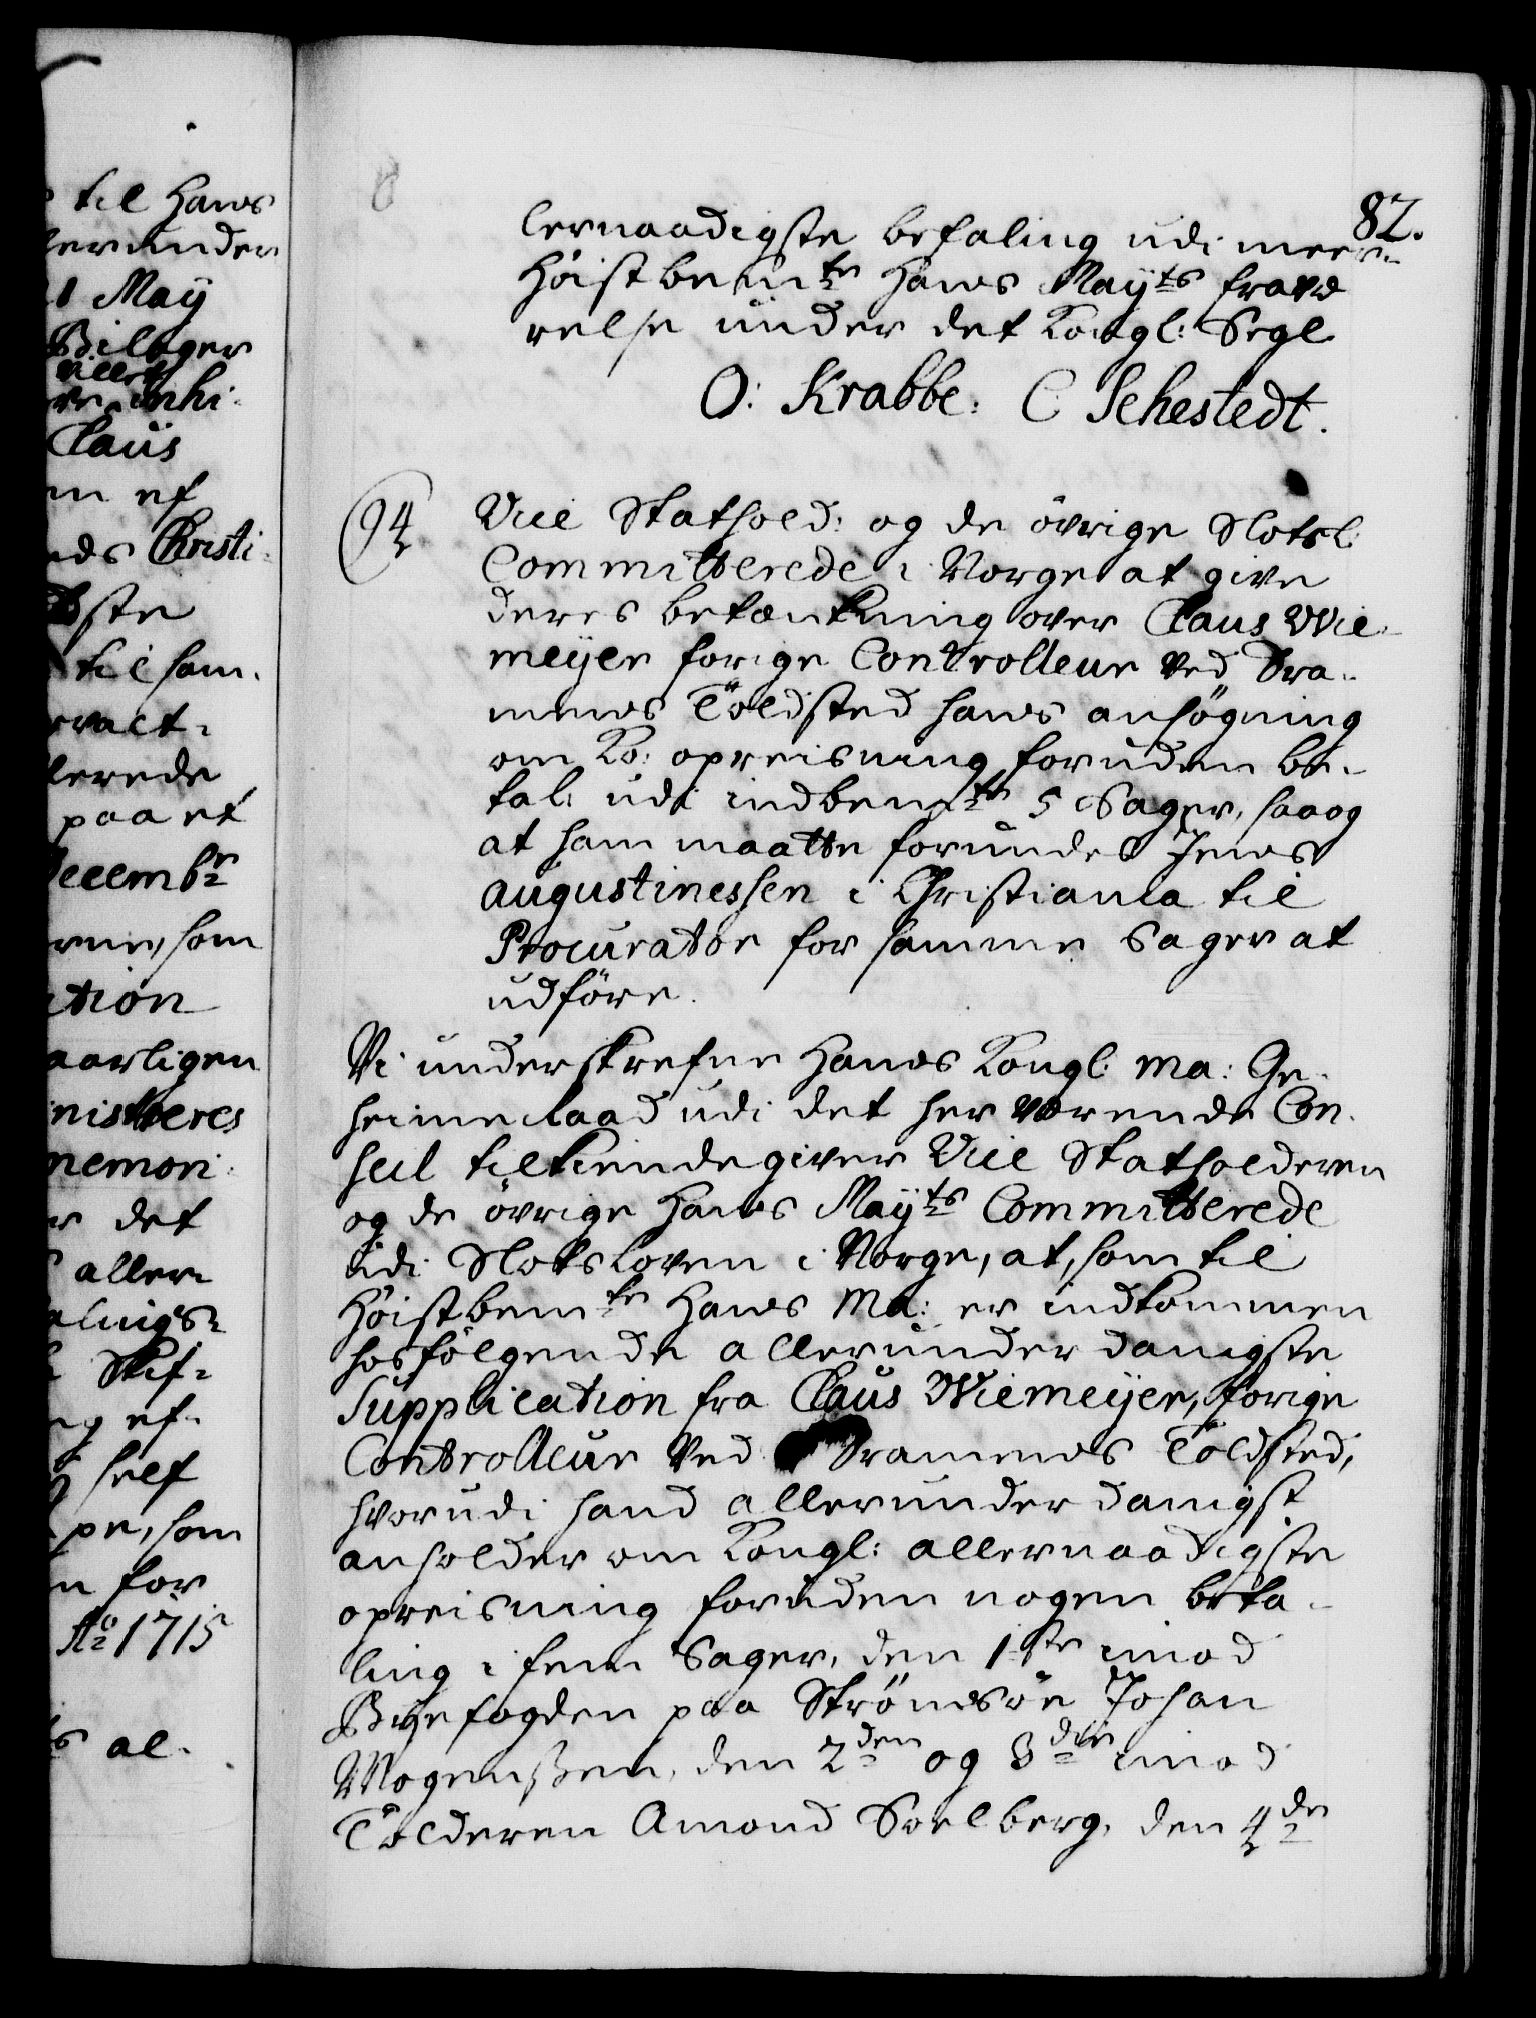 til Hans
lerunder
21 May
Bilager
villet
inhi-
Claus
ef
Christi-
ste
til ham.
rvalt-
lerede
paa et
Decembr
erne, som
ation
aarligen
nisteres
memori-
det
aller
alings-
Skif-
ng ef-
self
pe, som
for
Ao 1715
al-
82.
lernaadigste befaling udi meer-
Høistbemte Hans Mayts fravæ
relse under det Kongl: Segl.
O: Krabbe: C Sehestedt.
94
Vice Stathold: og de övrige Slotsl:
Committerede i Norge at give
deres betænkning over Claus Wie-
meyer forige Controlleur ved Dra-
mens Töldsted hans ansögning
om Ko: opreisning foruden be-
tal: udi indbemte 5 Sager, saa og
at ham maatte forundes Jens
Augustinessen i Christiania til
Procurator for samme Sager at
udföre.
Vi underskrefne Hans Kongl: Ma: Ge-
heimeraad udi det her værende Con-
seil tilkiendegiver Vice Statholderen
og de övrige Hans Mayts Committerede
udi Slotsloven i Norge, at, som til
Høistbemte Hans Ma: er indkommen
hosfölgende allerunderdanigste
Supplication fra Claus Wiemeyer, forige
Controlleur ved Dramens Töldsted,
hvorudi hand allerunderdanigst
anholder om Kongl: allernaadigste
opreisning foruden nogen beta-
ling i fem Sager, den 1ste imod
Byefogden paa Strömsöe Johan
Mogenßen, den 2den og 3die imod
Tolderen Amond Soelberg, den 4de